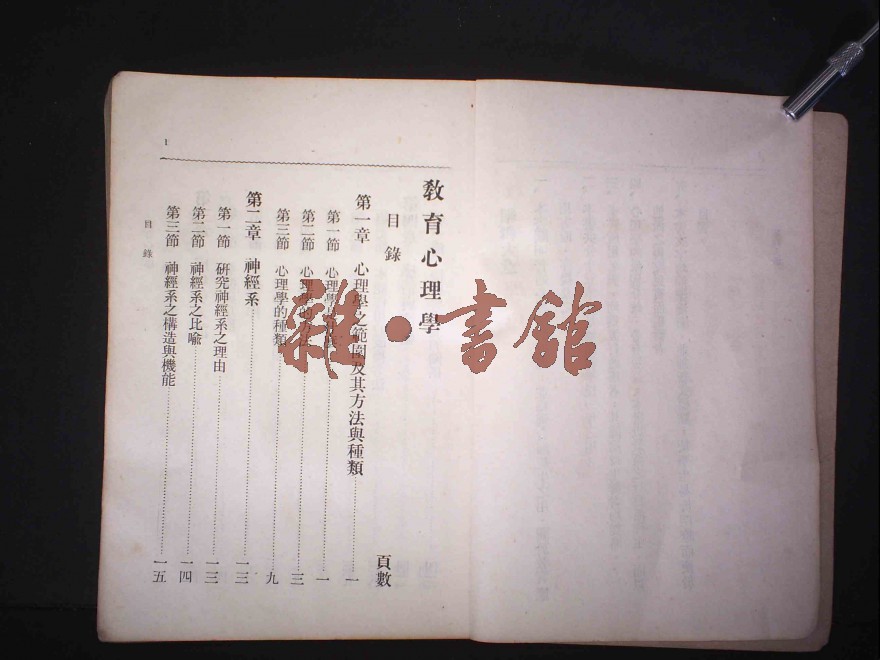 教育心理學
目錄
頁數
第一章 心理學之範圍及其方法與種類……一
第一節 心理學……一
第二節 心理學的方法……三
第三節 心理學的種類……九
第二章 神經系……一三
第一節 研究神經系之理由……一三
第二節 神經系之比喩……一四
第三節 神經系之構造與機能……一五
目錄
1
雜·書館